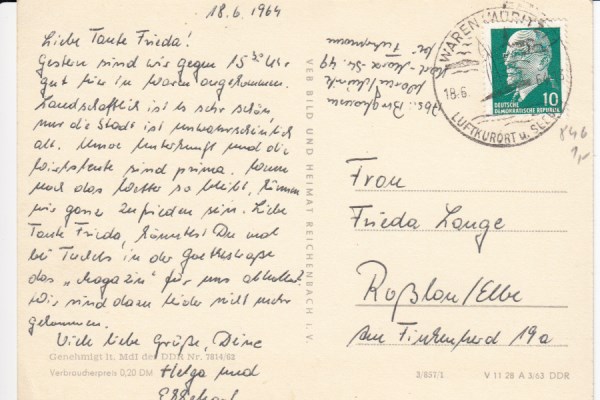 18.6.1964
Liebe Tante Frieda!
Gestern sind wir gegen 15³⁰ Uhr
gut hier in Waren angekommen.
Landschaftlich ist es sehr schön
nur die Stadt ist unwahrscheinlich
alt. Unsere Unterkunft und die
Wirtsleute sind prima. Wenn
nun das Wetter so bleibt, können
wir ganz zufrieden sein. Liebe
Tante Frieda, könntest Du mal
bei in der Goethestraße
das „Magazin" für uns abholen?
Wir sind dazu leider nicht mehr
gekommen.
Viele liebe Grüße, Deine
Helga und
Genehmigt lt. MdI der DDR Nr. 7814/62
Verbraucherpreis 0,20 DM
VEB BILD UND HEIMAT REICHENBACH I. V.
Abs.
Waren/Müritz
Karl-Marx-Str. 49
WAREN (MÜRITZ)
18.6.
LUFTKURORT u.
DEUTSCHE
DEMOKRATISCHE REPUBLIK
10
846
Frau
Frieda Lange
Roßlau/Elbe
Am Finkenherd 19a
3/857/1
V 11 28 A 3/63 DDR